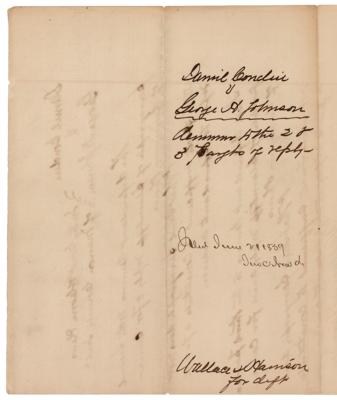 Daniel Conduit
v
George H. Johnson
Demurrer to the 2 &
3 Par'gts of reply
Filed June 29 1859
Jno C
Wallace & Harrison
for deft